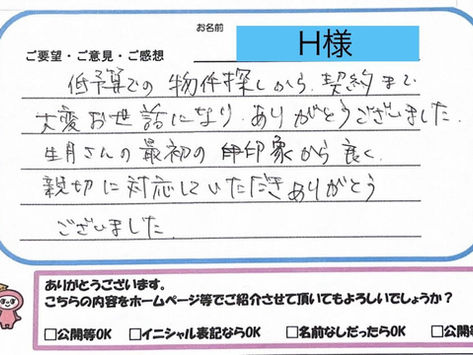 お名前
ご要望・ご意見・ご感想
H様
低予算での物件探しから、契約まで
大変お世話になり、ありがとうございました。
生月さんの最初の印印象から良く、
親切に対応していただきありがとう
ございました。
ありがとうございます。
こちらの内容をホームページ等でご紹介させて頂いてもよろしいでしょうか？
□公開等OK □イニシャル表記ならOK □名前なしだったらOK